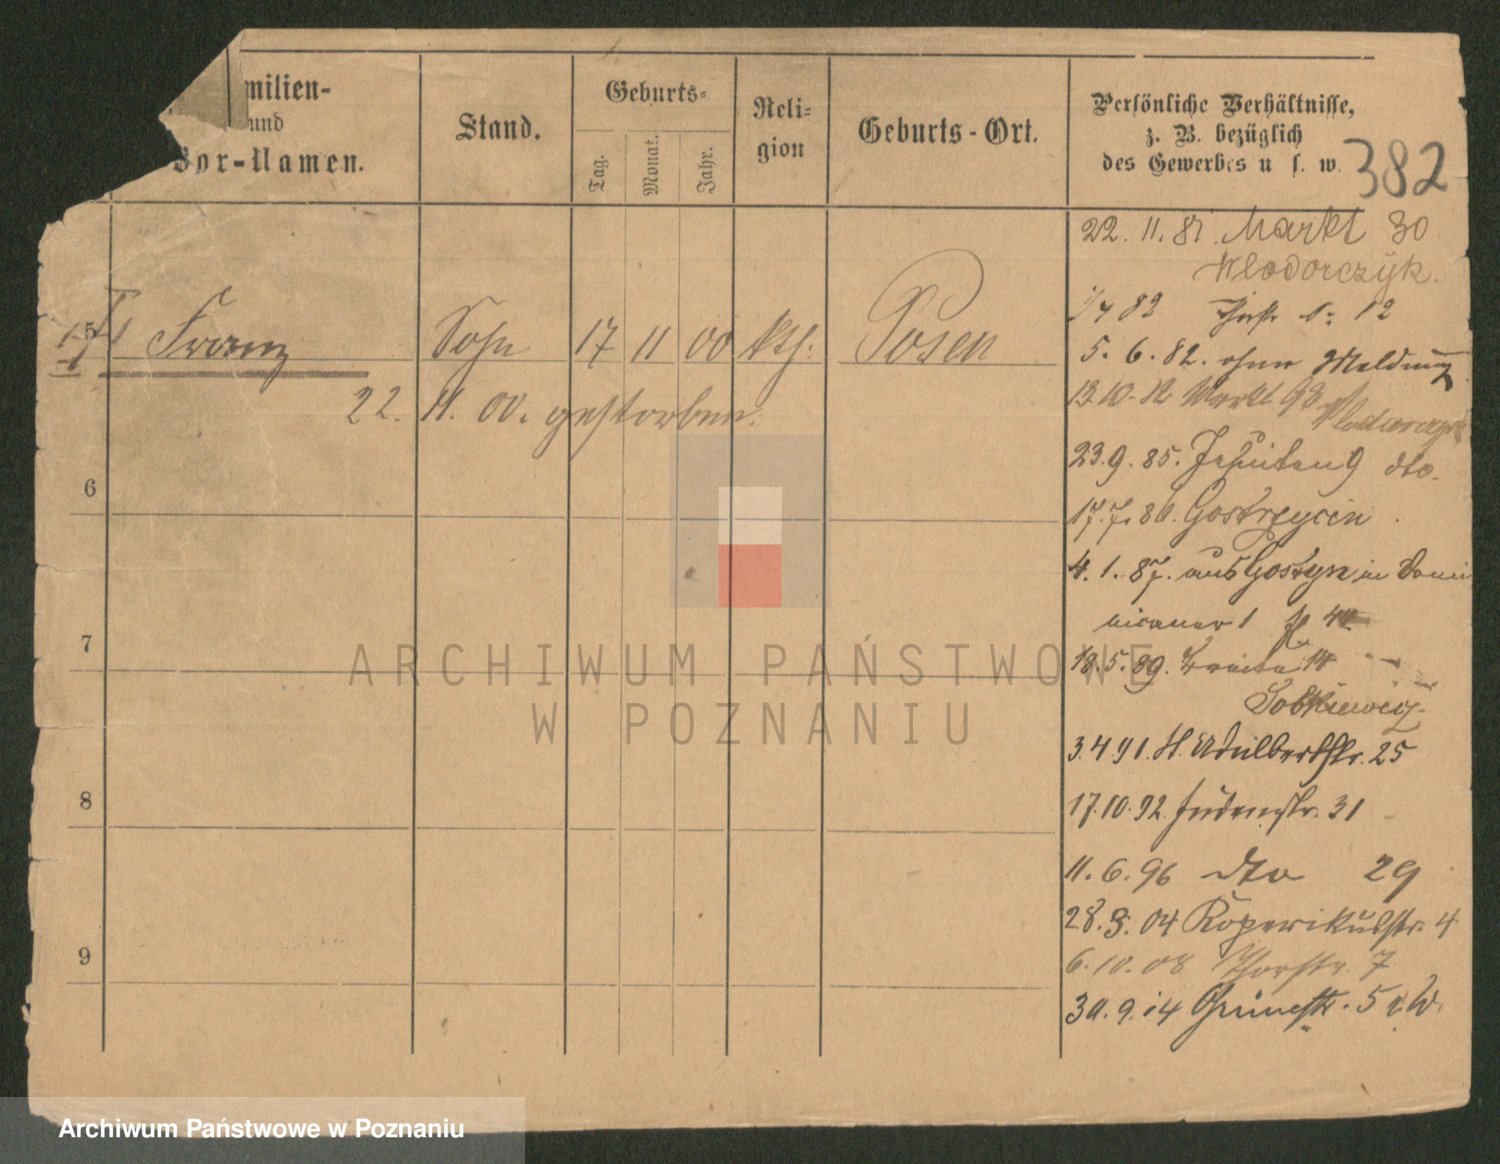 milien-
und
Vor-Namen.
Stand.
Geburts-
Tag.
Monat.
Jahr.
Reli-
gion
Geburts-Ort.
Persönliche Verhältnisse,
z. B. bezüglich
des Gewerbes u s. w.
382
5
Franz
Sohn
17
11
00
kth:
Posen
22. 11. 00. gestorben.
6
7
8
9
22. 11. 81. Markt 30
Wlodorczyk.
82 12
5. 6. 82. ohne Meldung
Markt 93
23. 9. 85. Jesuiten 9 dto.
17. 7. 86. Gostyn
4. 1. 87. aus Gostyn in Domi
nicaner 1
18. 5. 89. Breite 14
Sobkiewicz
3. 4 91. St. Adalbertstr. 25
17. 10. 92. Judenstr. 31
11. 6. 96 dto 29
28. 3. 04 Kopernikusstr. 4
6. 10. 08 Thorstr. 7
30. 9. 14 Grünestr. 5
ARCHIWUM PAŃSTWOWE
W POZNANIU
Archiwum Państwowe w Poznaniu